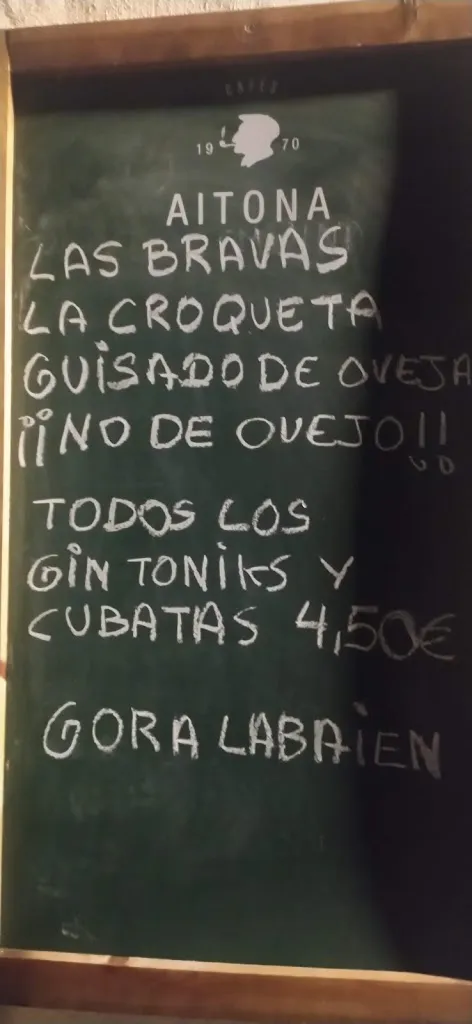 CAFES
19 70
AITONA
LAS BRAVAS
LA CROQUETA
GUiSADO DE OVEJA
¡¡NO DE OVEJO!!
TODOS LOS
GiN TONiKS Y
CUBATAS 4,50€
GORA LABAiEN